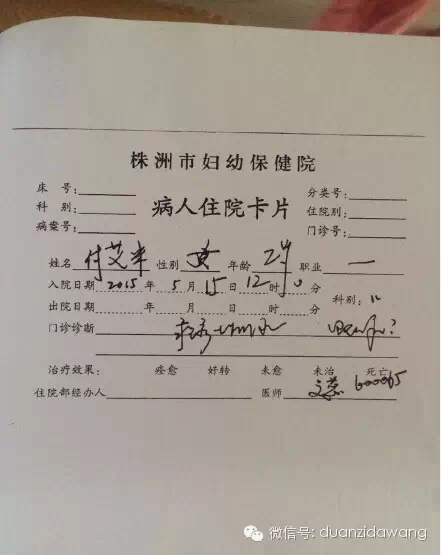 株洲市妇幼保健院
床 号: 分类号:
科 别: 病人住院卡片 住院别:
病案号: 门诊号:
姓名 付艾 性别 女 年龄 2岁 职业 一
入院日期 2015 年 5 月 15 日 12 时 分
出院日期 年 月 日 时 分 科别:
门诊诊断
治疗效果: 痊愈 好转 未愈 未治 死亡
住院部经办人 医师 600065
微信号: duanzidawang